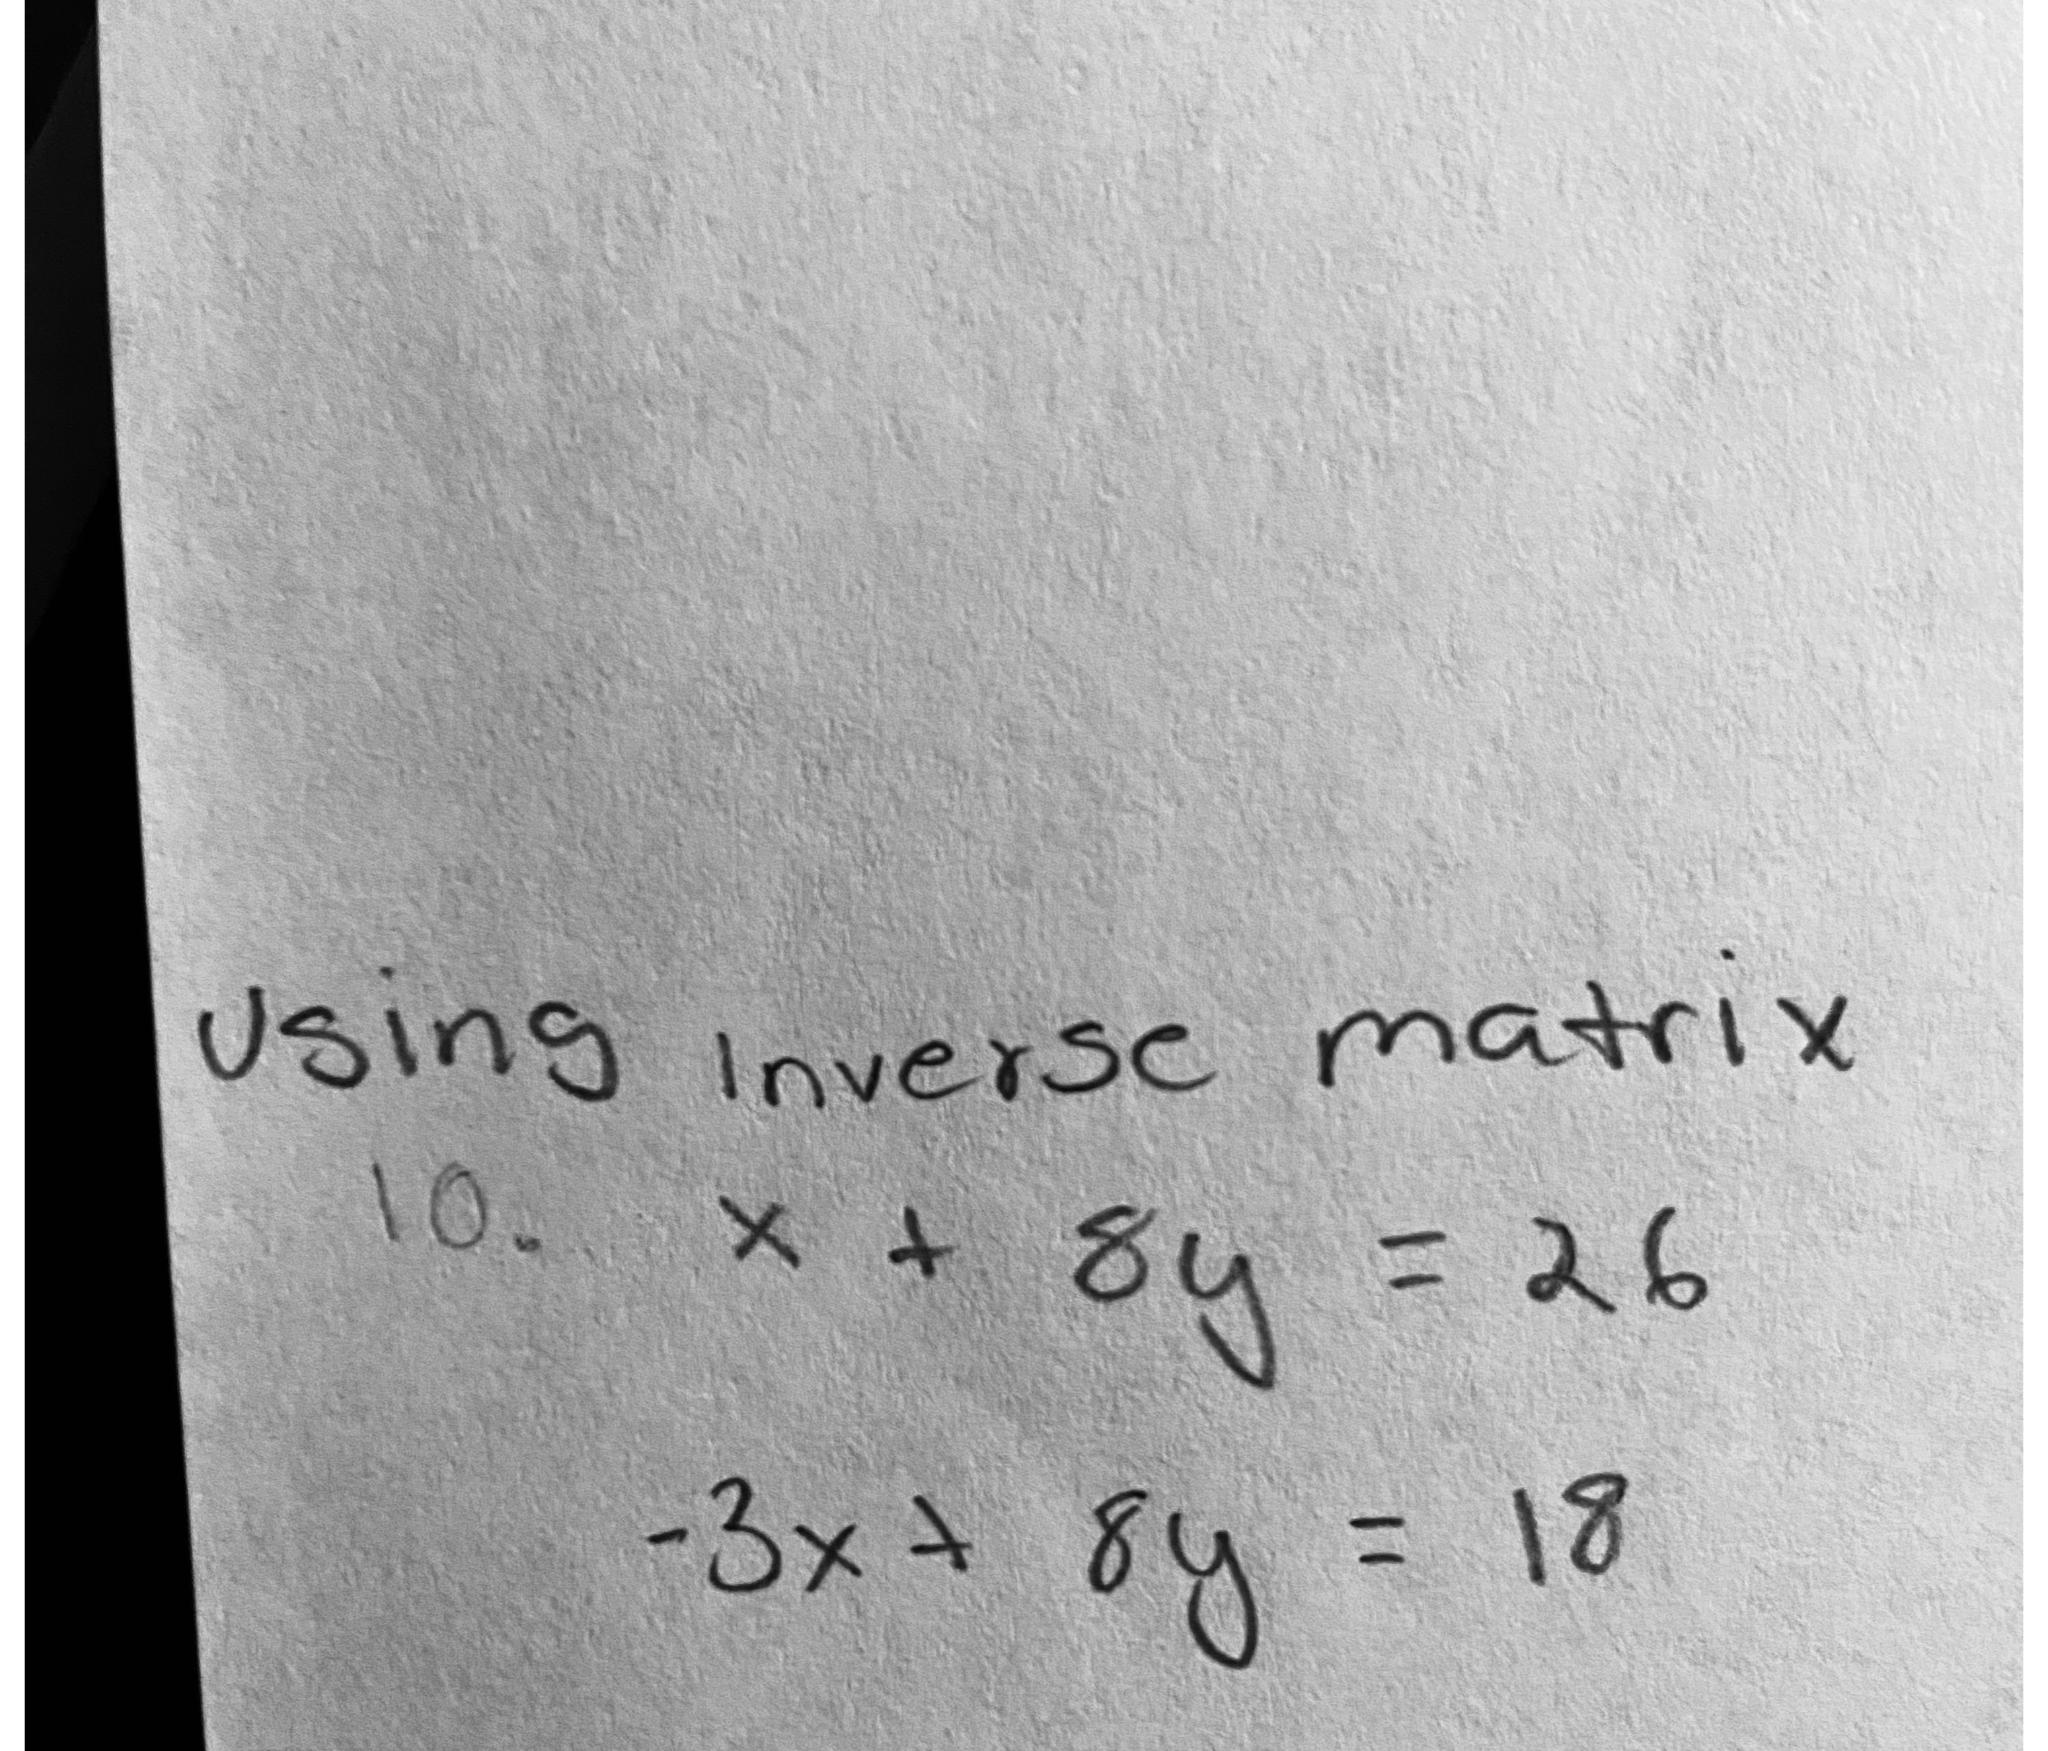 Using Inverse matrix
10. x + 8y = 26
-3x + 8y = 18